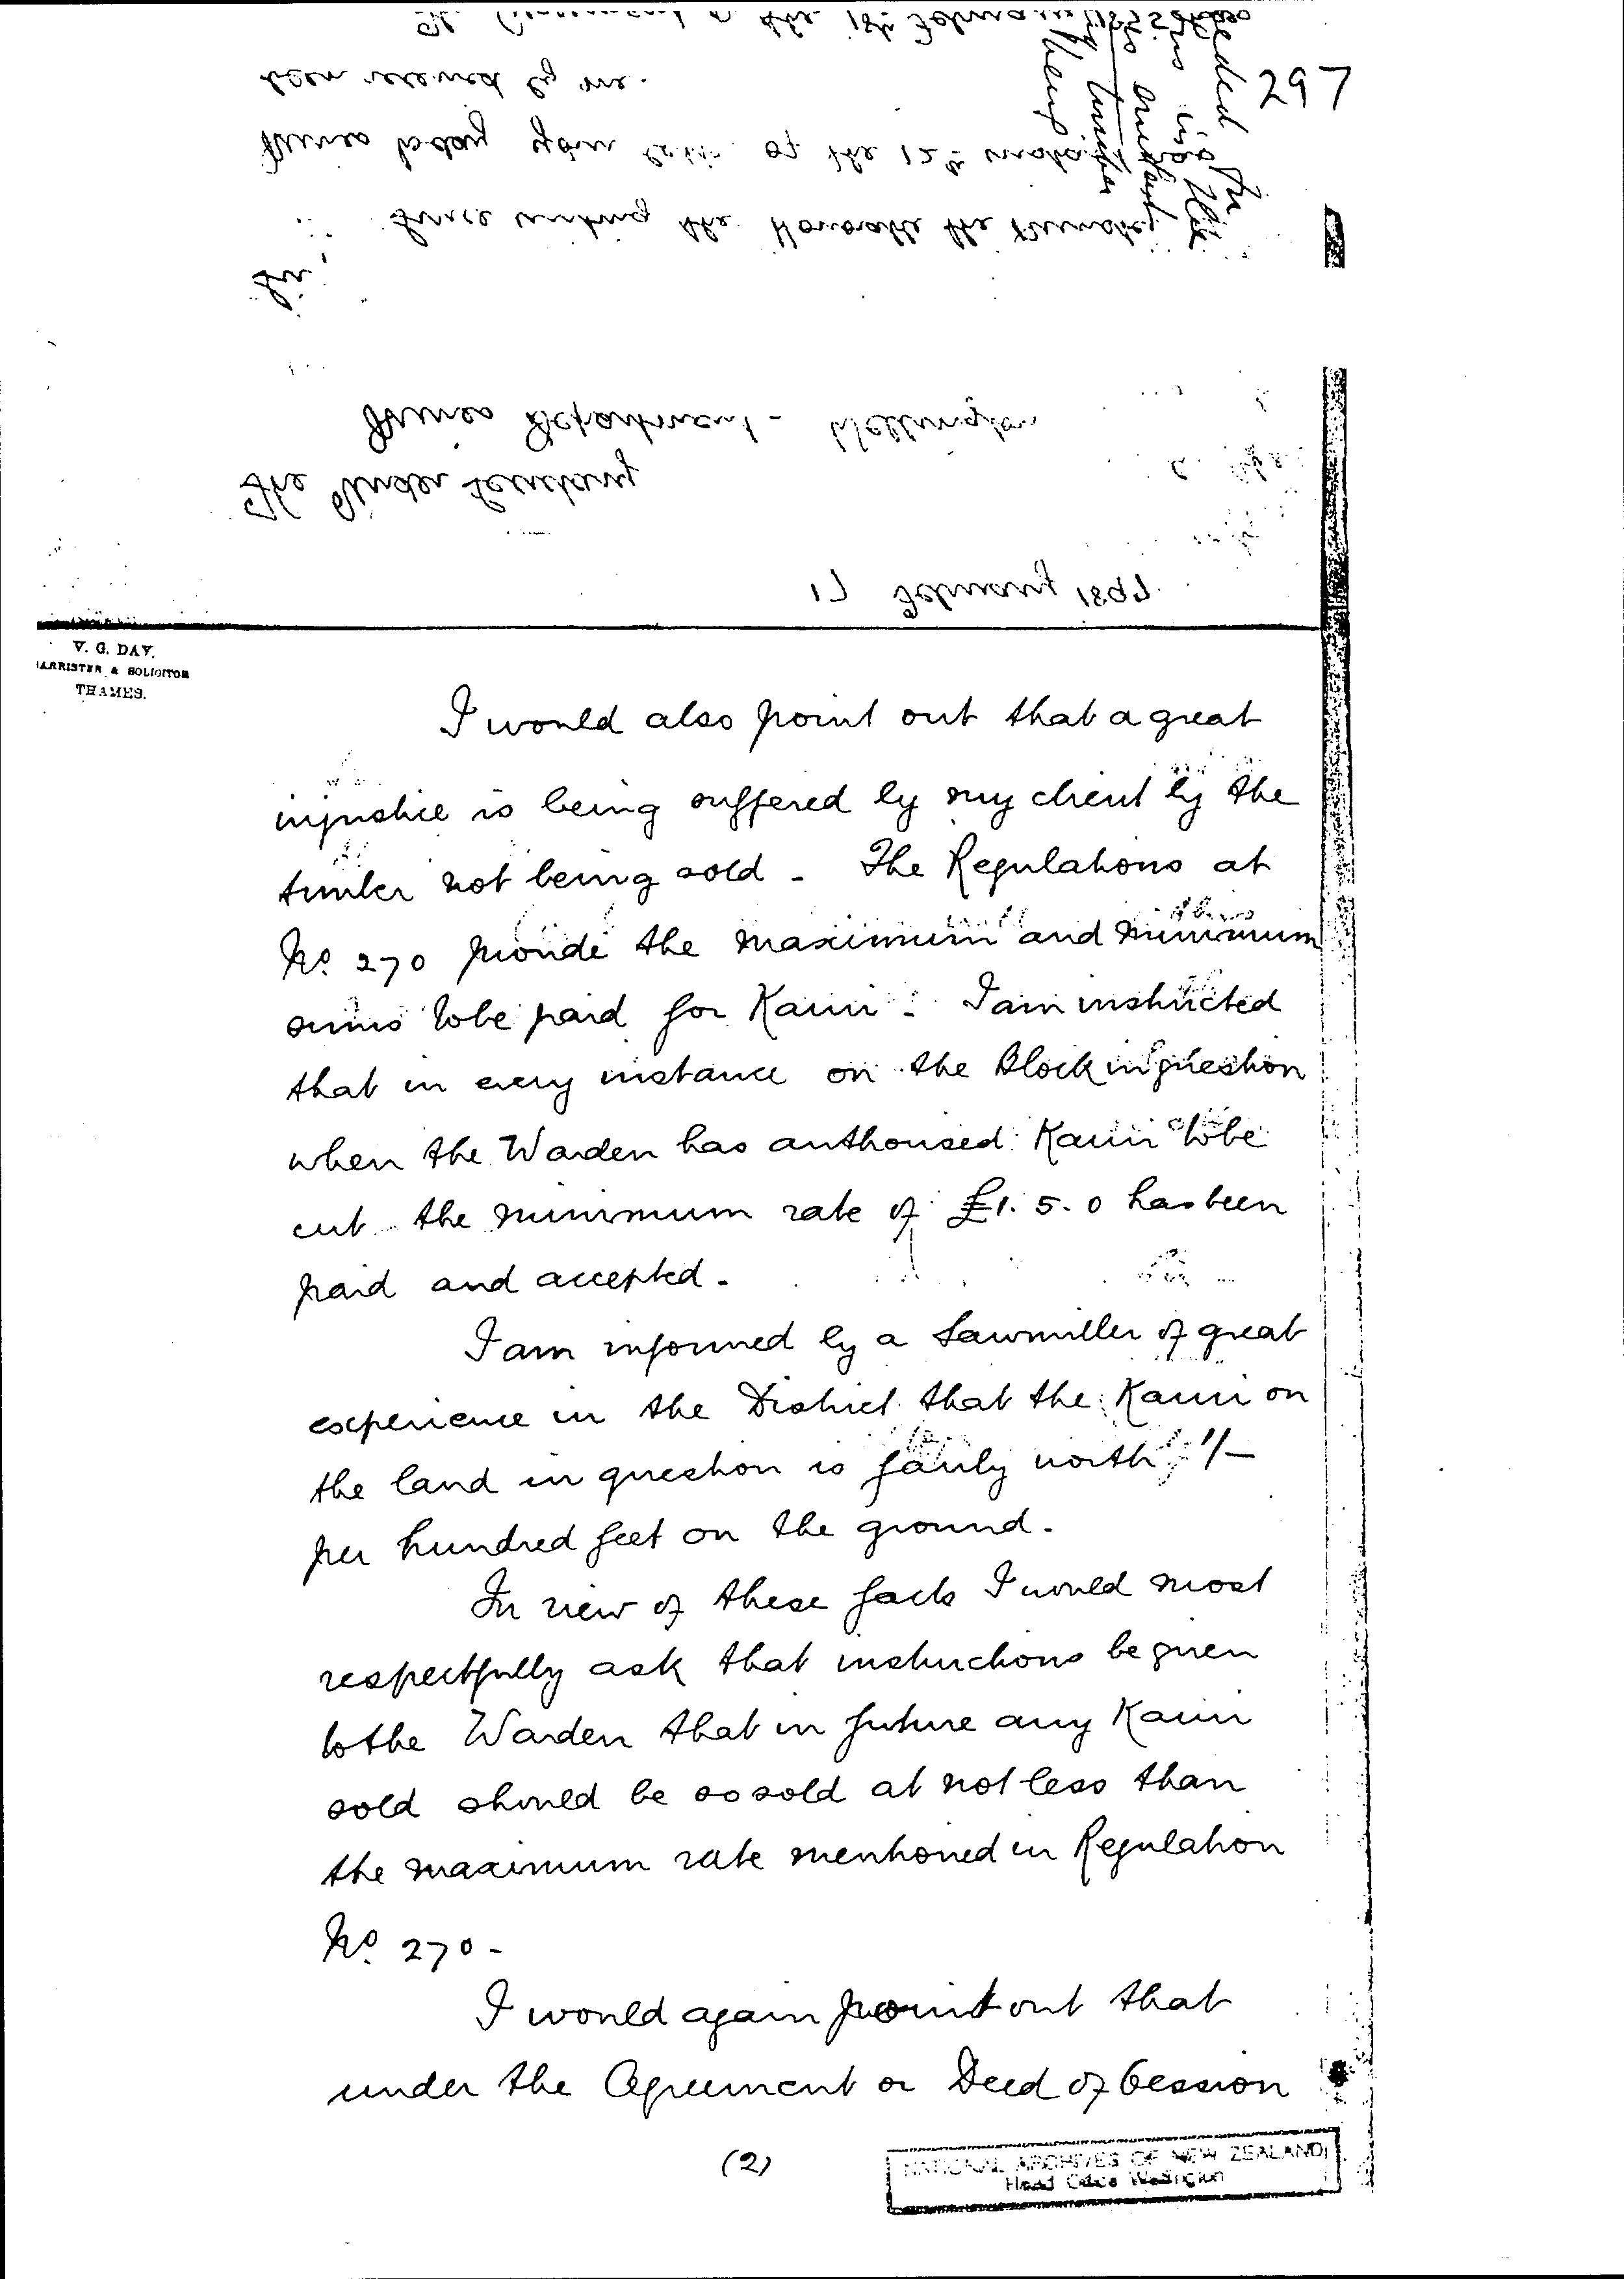 297
17 February 1897.
The Under Secretary
Mines Department - Wellington
Sir,
Since writing the Honorable the Minister
Mines today your letter of the 12th instant has
been received by me.
V. G. DAY,
BARRISTER & SOLICITOR
THAMES.
I would also point out that a great
injustice is being suffered by my client by the
timber not being sold - The Regulations at
No. 270 provide the maximum and minimum
sums to be paid for Kauri - I am instructed
that in every instance on the Block in question
when the Warden has authorised Kauri to be
cut the minimum rate of £1. 5. 0 has been
paid and accepted -
I am informed by a Sawmiller of great
experience in the District that the Kauri on
the land in question is fairly worth 1/-
per hundred feet on the ground -
In view of these facts I would most
respectfully ask that instructions be given
to the Warden that in future any Kauri
sold should be so sold at not less than
the maximum rate mentioned in Regulation
No. 270 -
I would again point out that
under the Agreement or Deed of Cession
(2)
NATIONAL ARCHIVES OF NEW ZEALAND
Head Office Wellington